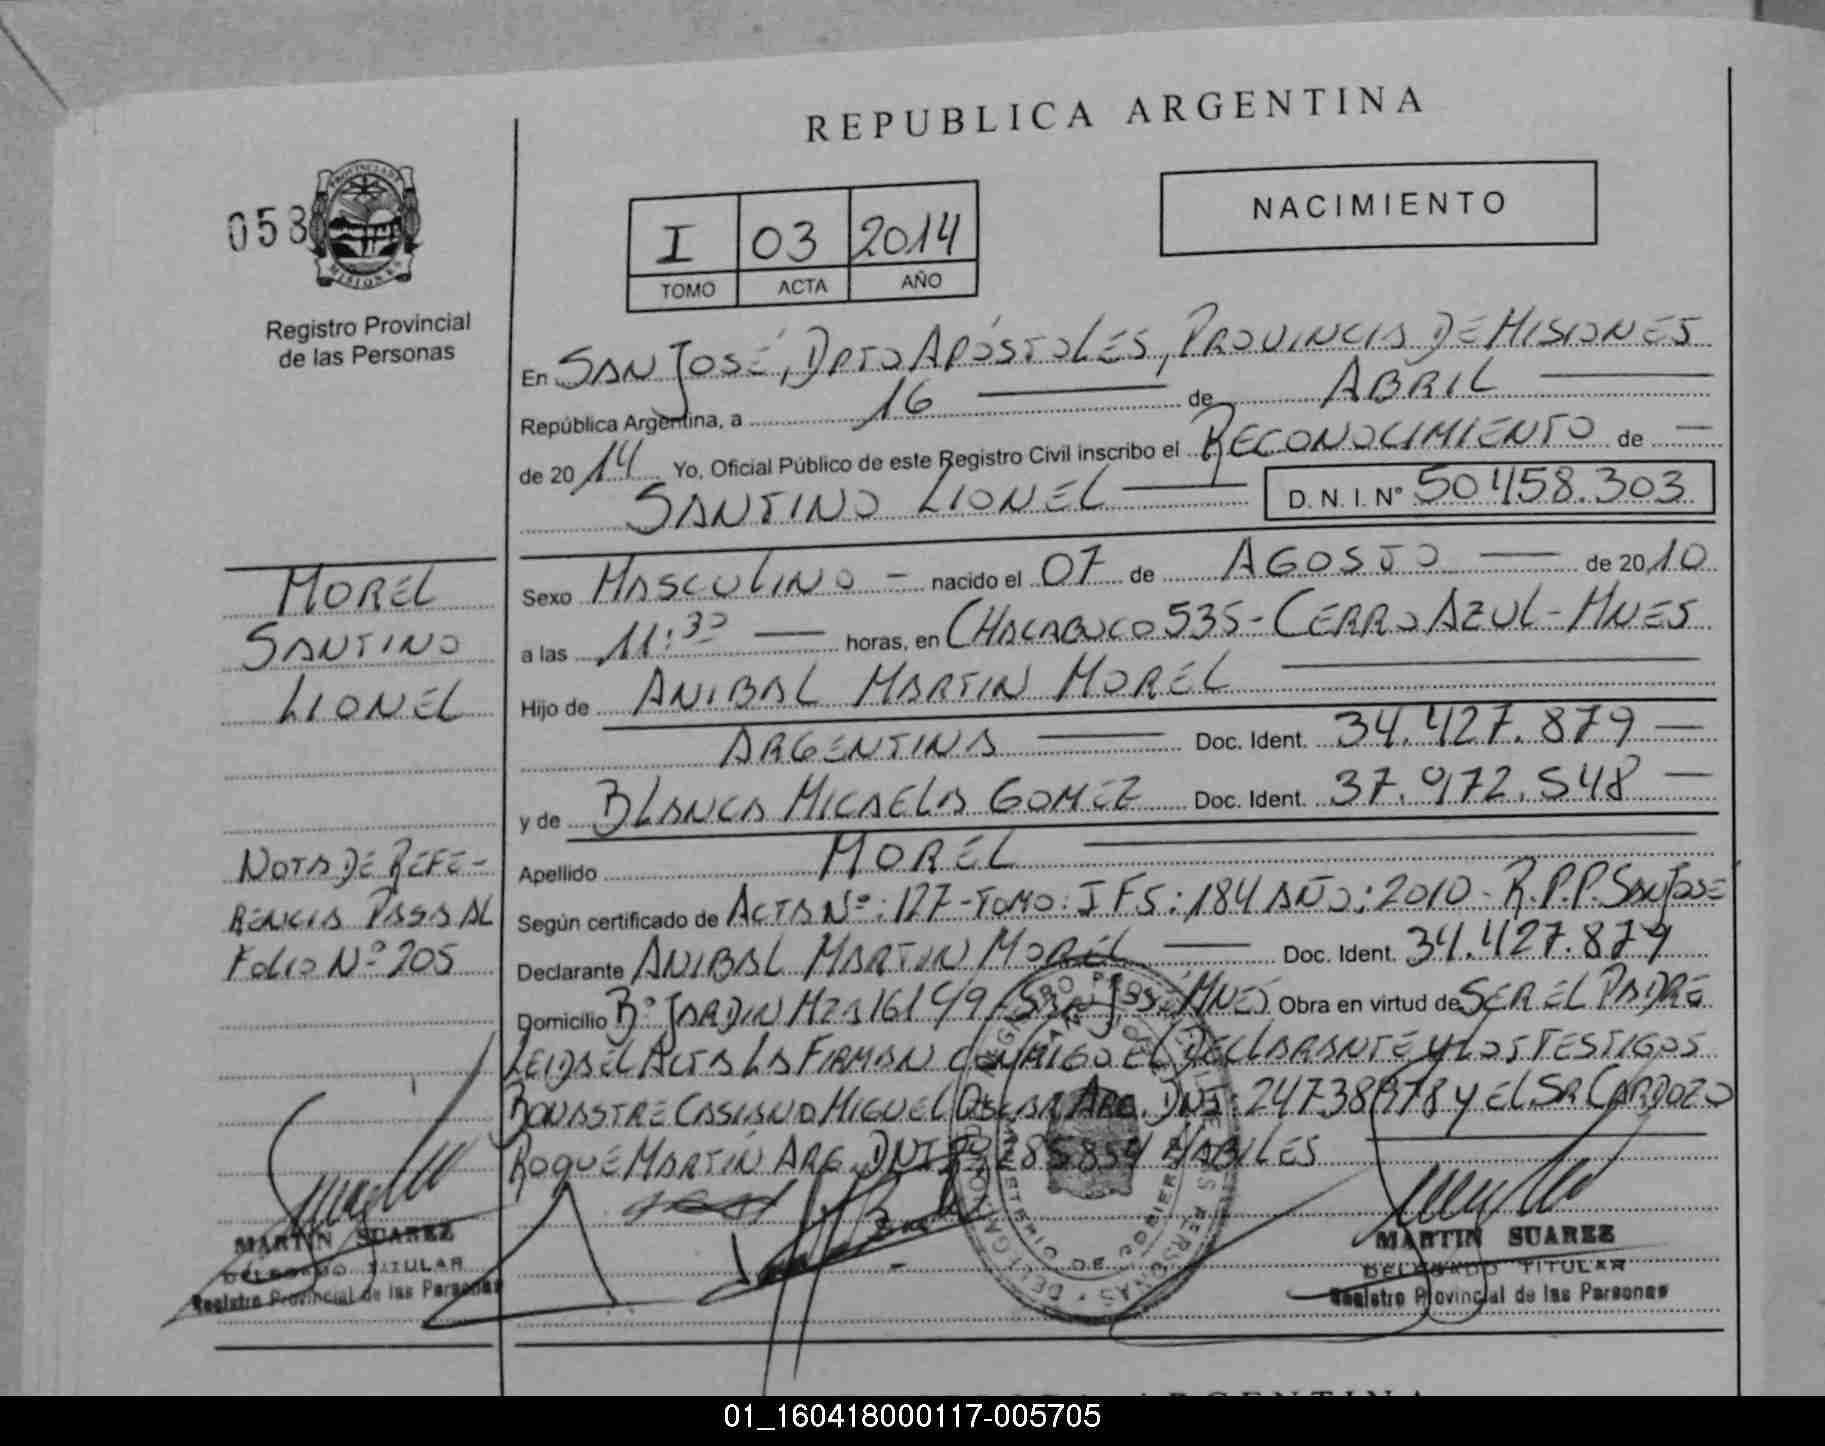 REPUBLICA ARGENTINA
058
PROVINCIA DE MISIONES
Registro Provincial
de las Personas
NACIMIENTO
I 03 2014
TOMO ACTA AÑO
En SAN JOSÉ, DPTO APÓSTOLES, PROVINCIA DE MISIONES
República Argentina, a 16 de ABRIL
de 2014 Yo, Oficial Público de este Registro Civil inscribo el RECONOCIMIENTO de
SANTINO LIONEL D. N. I. Nº 50458.303
MOREL
SANTINO
LIONEL
Sexo MASCULINO - nacido el 07 de AGOSTO de 2010
a las 11:30 horas, en CHACABUCO 535 - CERRO AZUL - MNES
Hijo de ANIBAL MARTIN MOREL
ARGENTINA Doc. Ident. 34.427.879
y de BLANCA MICAELA GOMEZ Doc. Ident. 37.972.548
NOTA DE REFE-
RENCIA PASA AL
FOLIO Nº 205
Apellido MOREL
Según certificado de ACTA Nº: 127 - TOMO: I FS: 184 AÑO: 2010 - R.P.P. SAN JOSE
Declarante ANIBAL MARTIN MOREL Doc. Ident. 34.427.879
Domicilio Bº JARDIN MZA 161 SAN JOSE MNES Obra en virtud de SER EL PADRE
LEIDA EL ACTA LA FIRMAN CONMIGO EL DECLARANTE Y LOS TESTIGOS
BONASTRE CASIANO MIGUEL OSCAR ARG. DNI: 24738978 Y EL SR CARDOZO
ROQUE MARTIN ARG. DNI HABILES
MARTIN SUAREZ
DELEGADO TITULAR
Registro Provincial de las Personas
MARTIN SUAREZ
DELEGADO TITULAR
Registro Provincial de las Personas
01_160418000117-005705